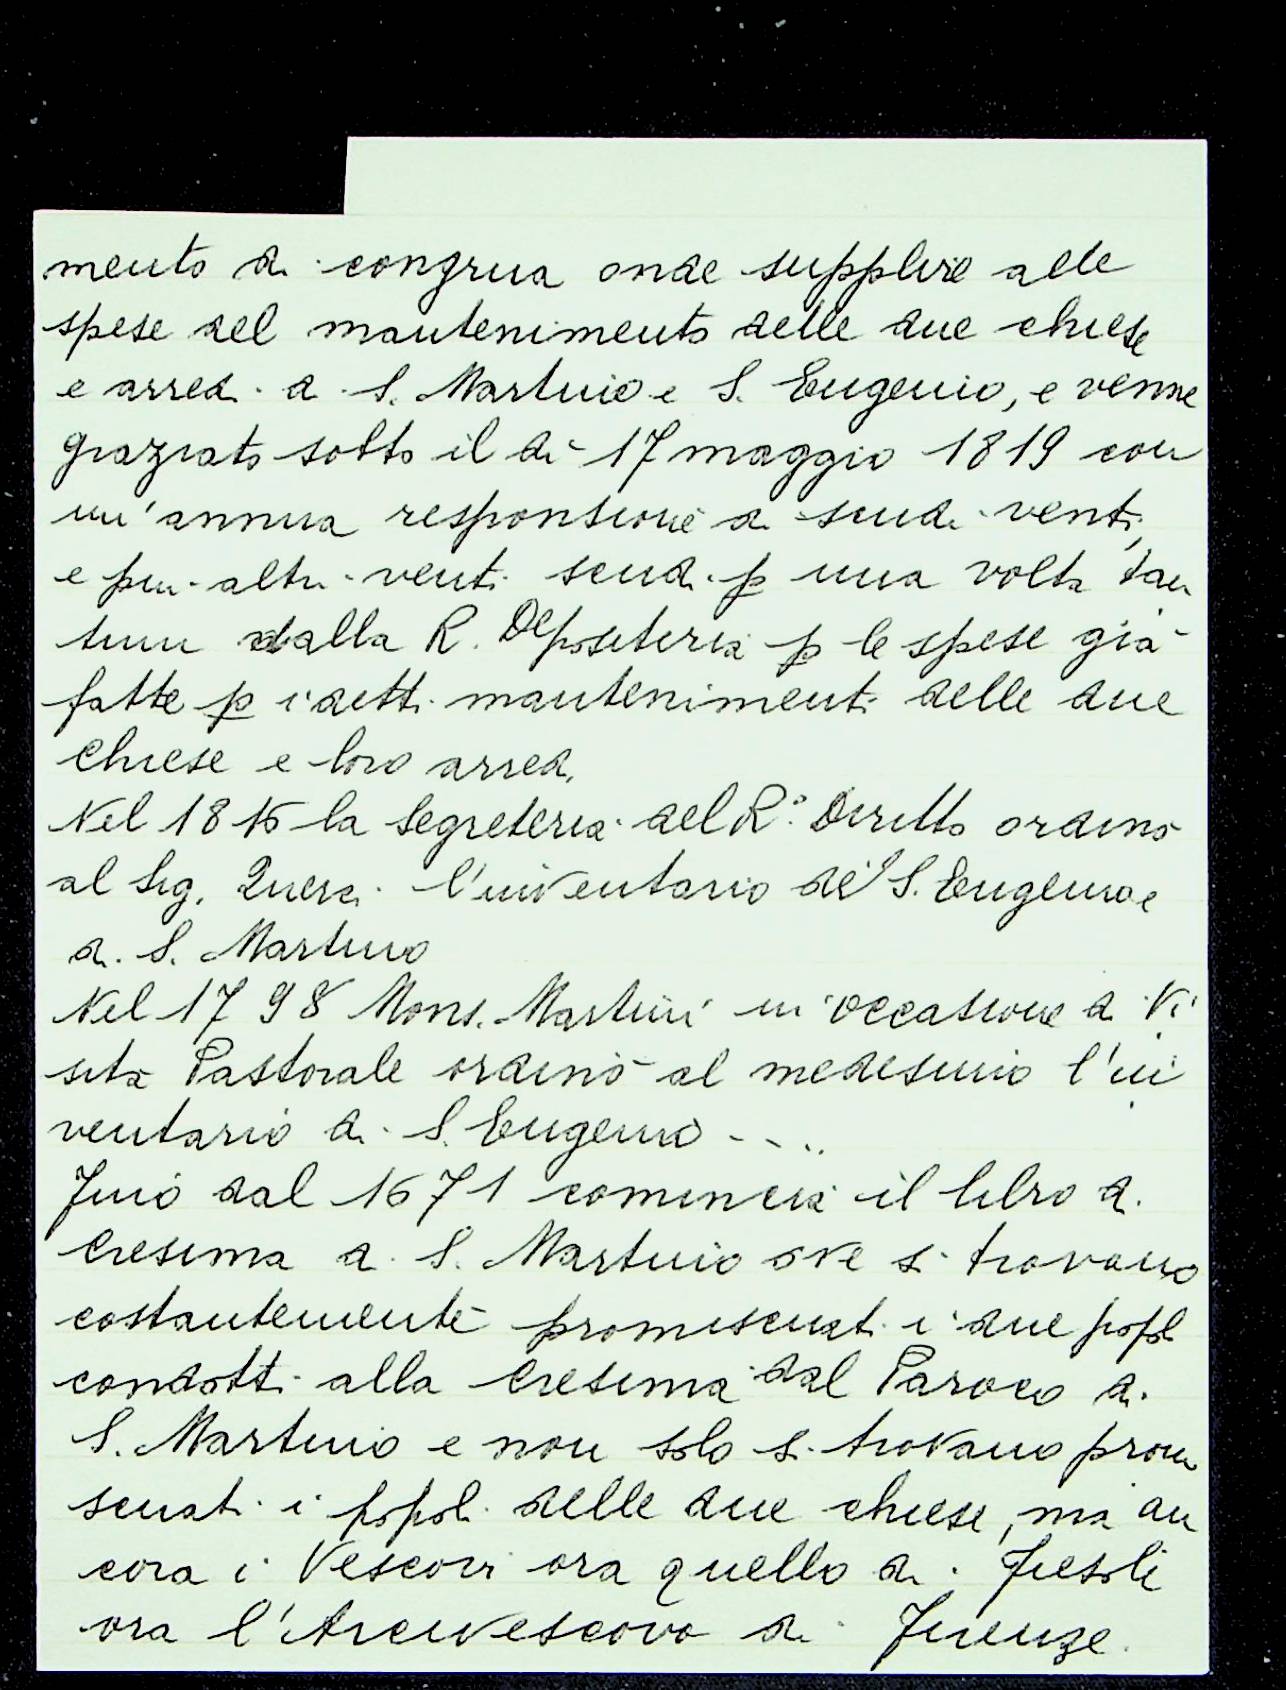 mento di congrua onde supplire alle
spese del mantenimento delle due chiese
e arredi di S. Martino e S. Eugenio, e venne
graziato sotto il dì 17 maggio 1819 con
un'annua responsione di scudi venti,
e più altri venti scudi p una volta tan
tum dalla R. Depositeria p le spese già
fatte p i detti mantenimenti delle due
Chiese e loro arredi.
Nel 1816 la Segreteria del R.° Diritto ordinò
al Sig. Querci l'inventario di S. Eugenio e
di S. Martino
Nel 1798 Mons. Martini in occasione di Vi
sita Pastorale ordinò al medesimo l'in
ventario di S. Eugenio ....
Fino dal 1671 comincia il libro di
Cresima di S. Martino ove si trovano
costantemente promiscuati i due popoli
condotti alla Cresima dal Paroco di
S. Martino e non solo si trovano promi
scuati i popoli delle due chiese, ma an
cora i Vescovi ora quello di Fiesoli
ora l'Arcivescovo di Firenze.